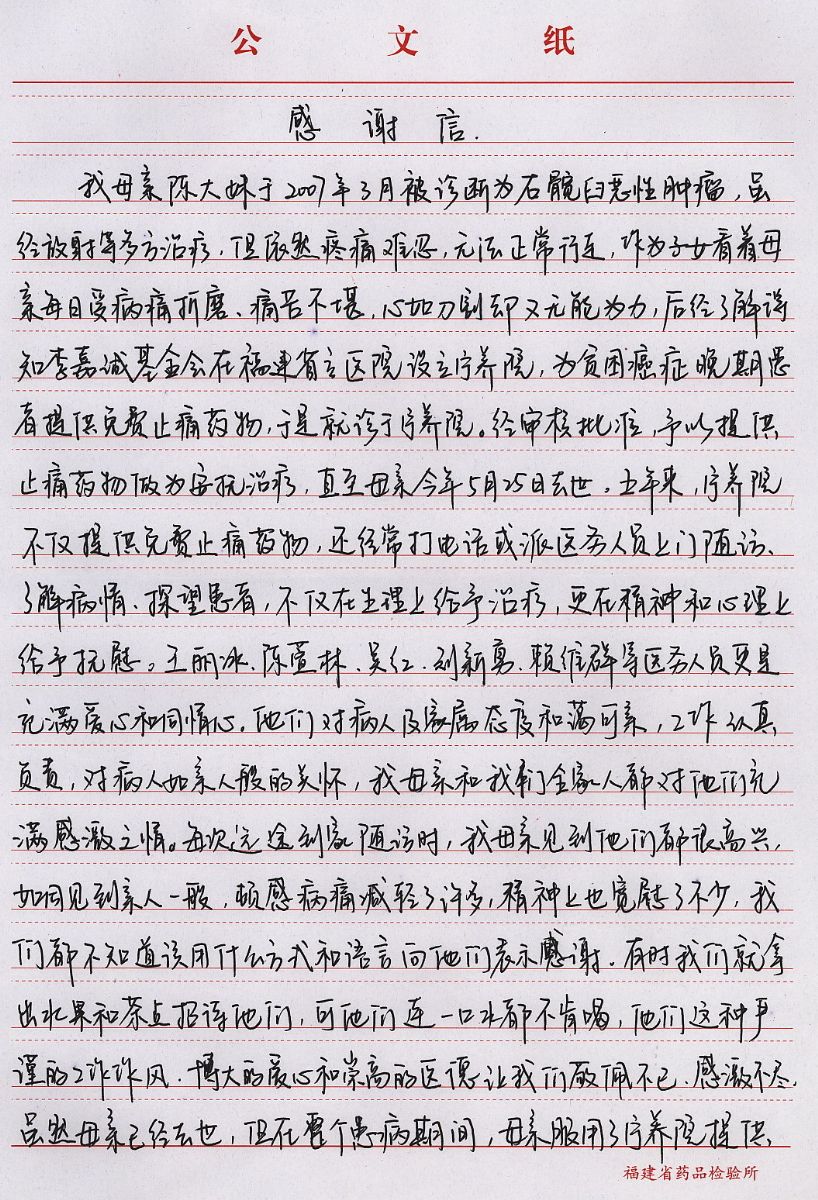 公文纸
感谢信.
我母亲陈大妹于2007年3月被诊断为右髋臼恶性肿瘤，虽
经放射等多方治疗，但依然疼痛难忍，无法正常行走，作为子女看着母
亲每日受病痛折磨、痛苦不堪，心如刀割却又无能为力，后经了解得
知李嘉诚基金会在福建省立医院设立宁养院，为贫困癌症晚期患
者提供免费止痛药物，于是就诊于宁养院。经审核批准，予以提供
止痛药物做为安抚治疗，直至母亲今年5月25日去世。五年来，宁养院
不仅提供免费止痛药物，还经常打电话或派医务人员上门随访、
了解病情、探望患者，不仅在生理上给予治疗，更在精神和心理上
给予抚慰。王丽冰、陈萱林、吴红、刘新勇、赖维群等医务人员更是
充满爱心和同情心。他们对病人及家属态度和蔼可亲，工作认真
负责，对病人如亲人般的关怀，我母亲和我们全家人都对他们充
满感激之情。每次远途到家随访时，我母亲见到他们都很高兴，
如同见到亲人一般，顿感病痛减轻了许多，精神上也宽慰了不少，我
们都不知道该用什么方式和语言向他们表示感谢。有时我们就拿
出水果和茶点招待他们，可他们连一口水都不肯喝，他们这种严
谨的工作作风、博大的爱心和崇高的医德让我们敬佩不已、感激不尽.
虽然母亲已经去世，但在整个患病期间，母亲服用了宁养院提供、
福建省药品检验所